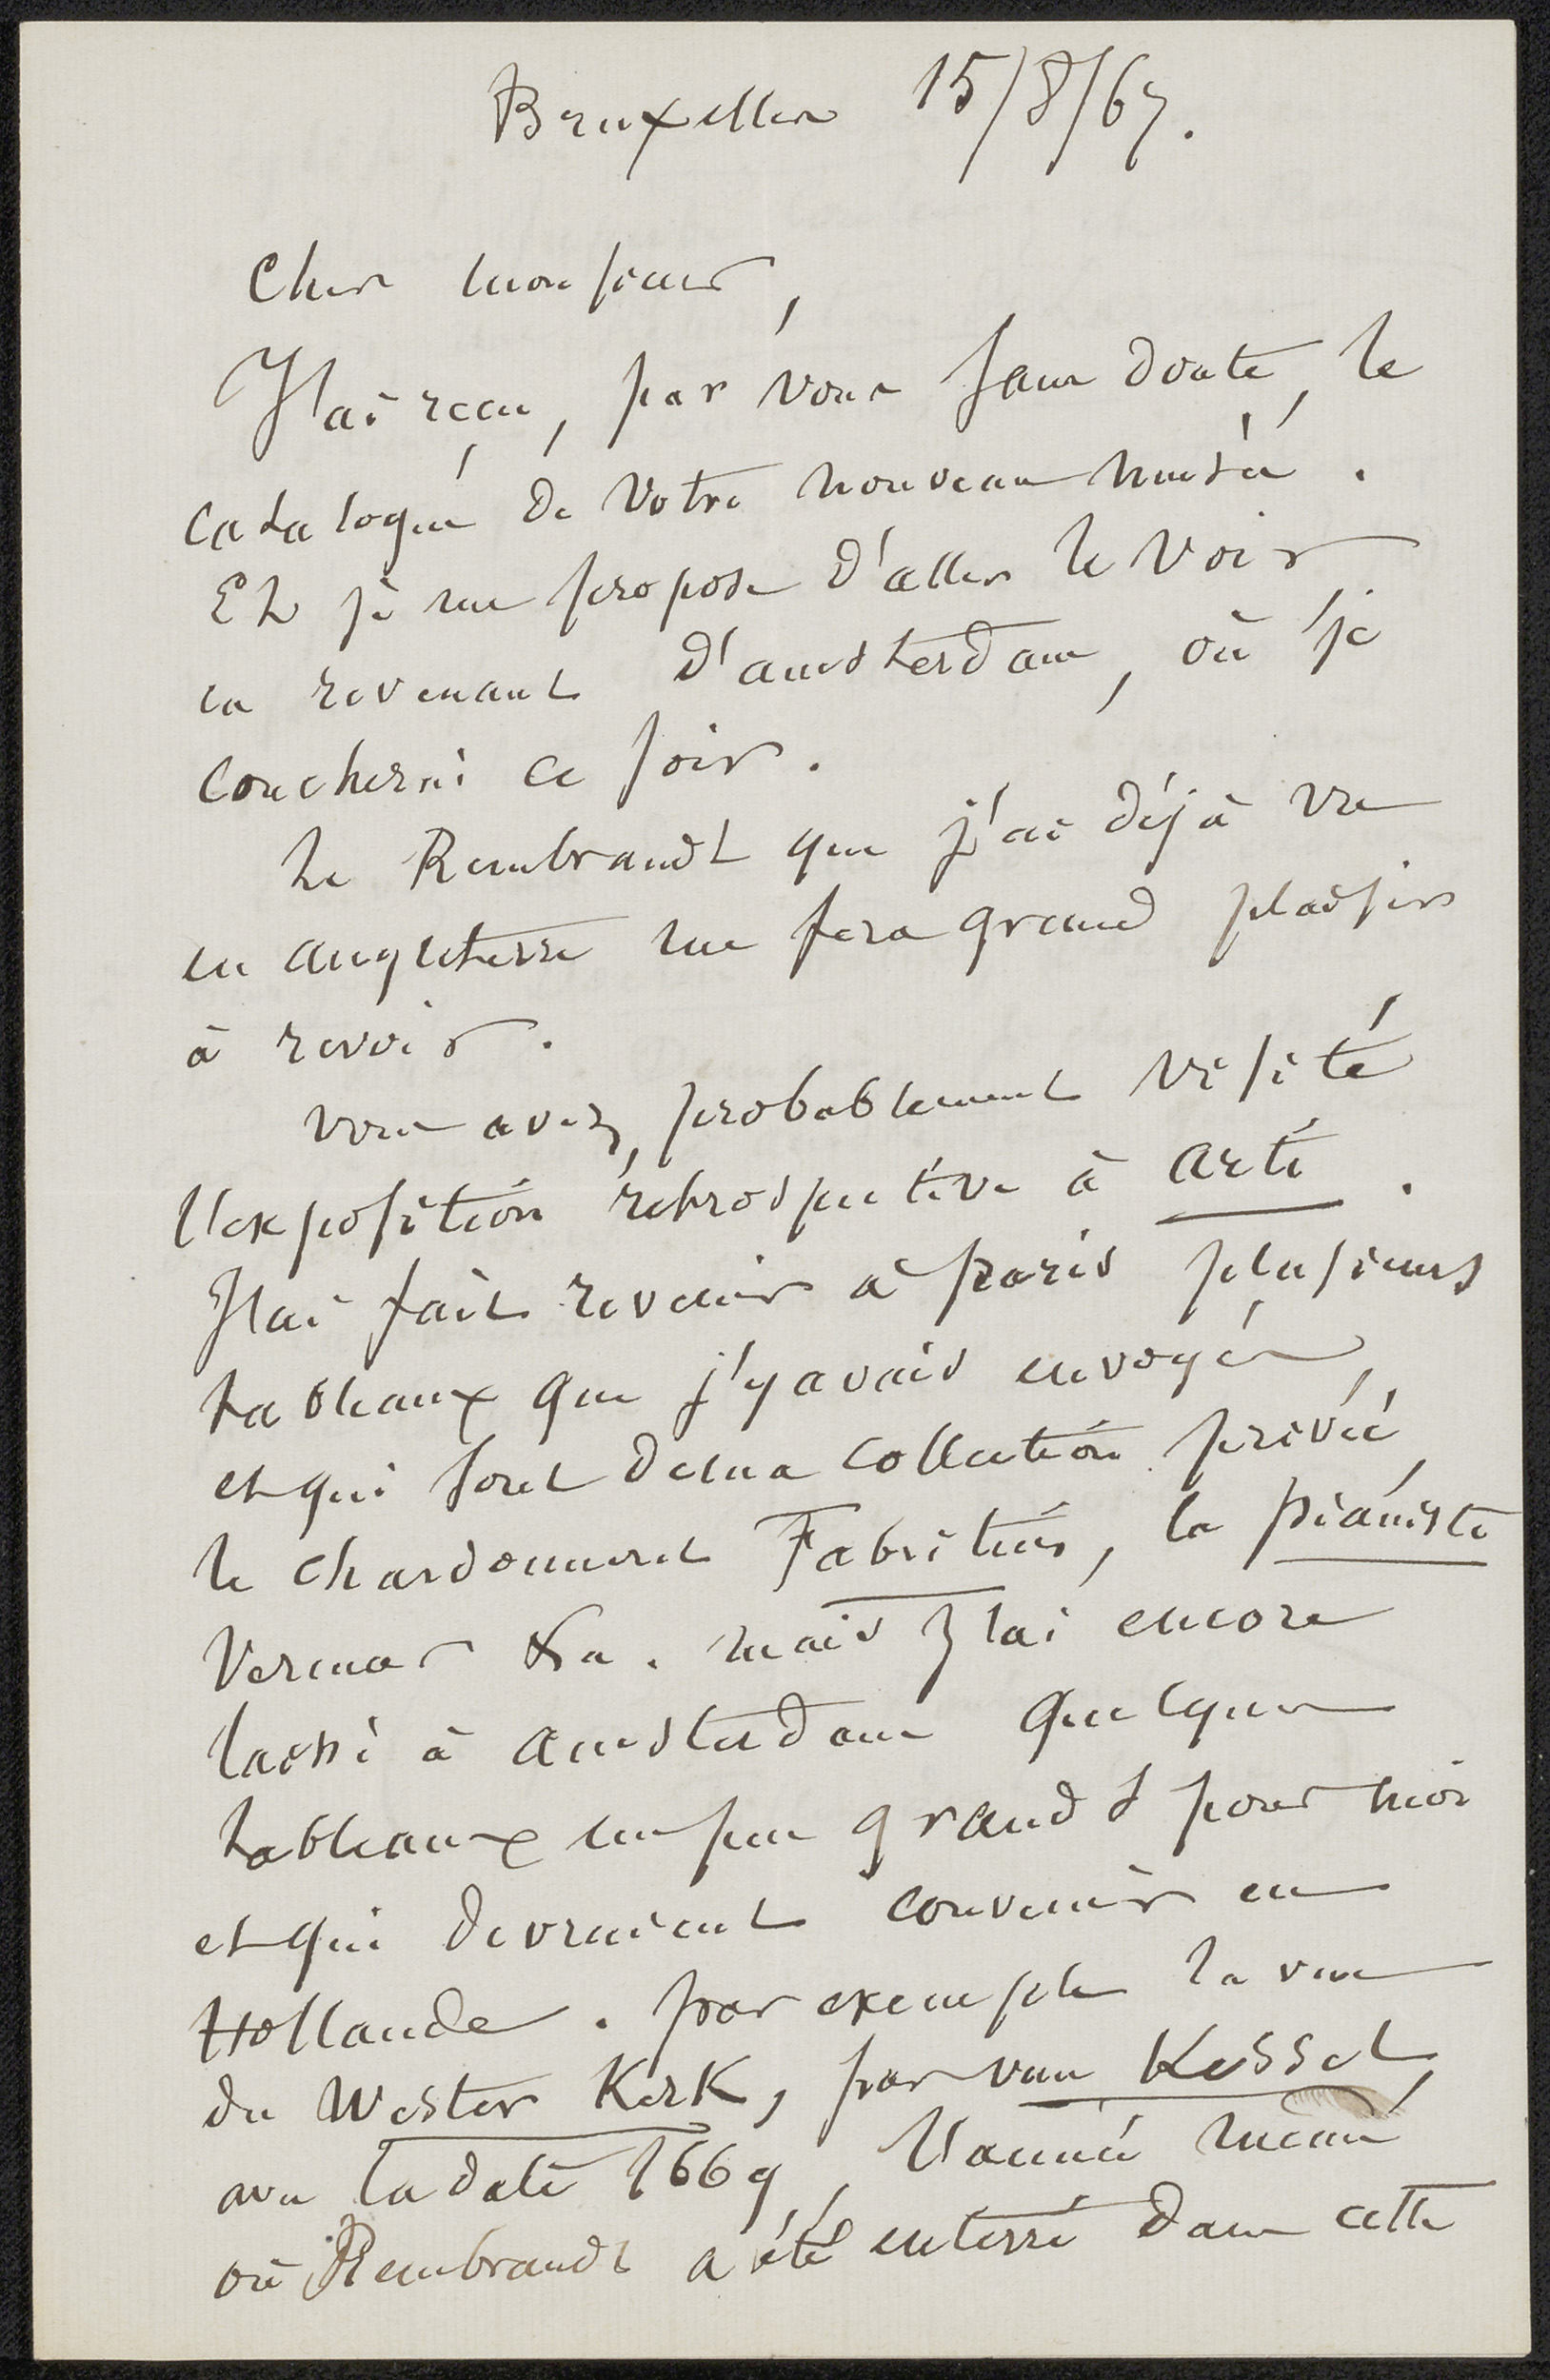 Bruxelles 15/8/67.
Cher monsieur,
J'ai reçu, par vous sans doute, le
catalogue de votre nouveau musée.
Et je me propose d'aller le voir
en revenant d'amsterdam, où je
coucherai ce soir.
Le Rembrandt que j'ai déjà vu
en angleterre me fera grand plaisir
à revoir.
Vous avez probablement visité
l'exposition rétrospective à arti.
J'ai fait revenir à paris plusieurs
tableaux que j'y avais envoyés,
et qui sont de ma collection privée,
le chardonneret Fabritius, la pianiste
Vermeer &a. mais j'ai encore
laissé à amsterdam quelques
tableaux un peu grands pour moi
et qui devraient convenir en
Hollande. par exemple la vue
du Wester Kerk, par van Kessel,
avec la date 1669, l'année même
où Rembrandt a été enterré dans cette